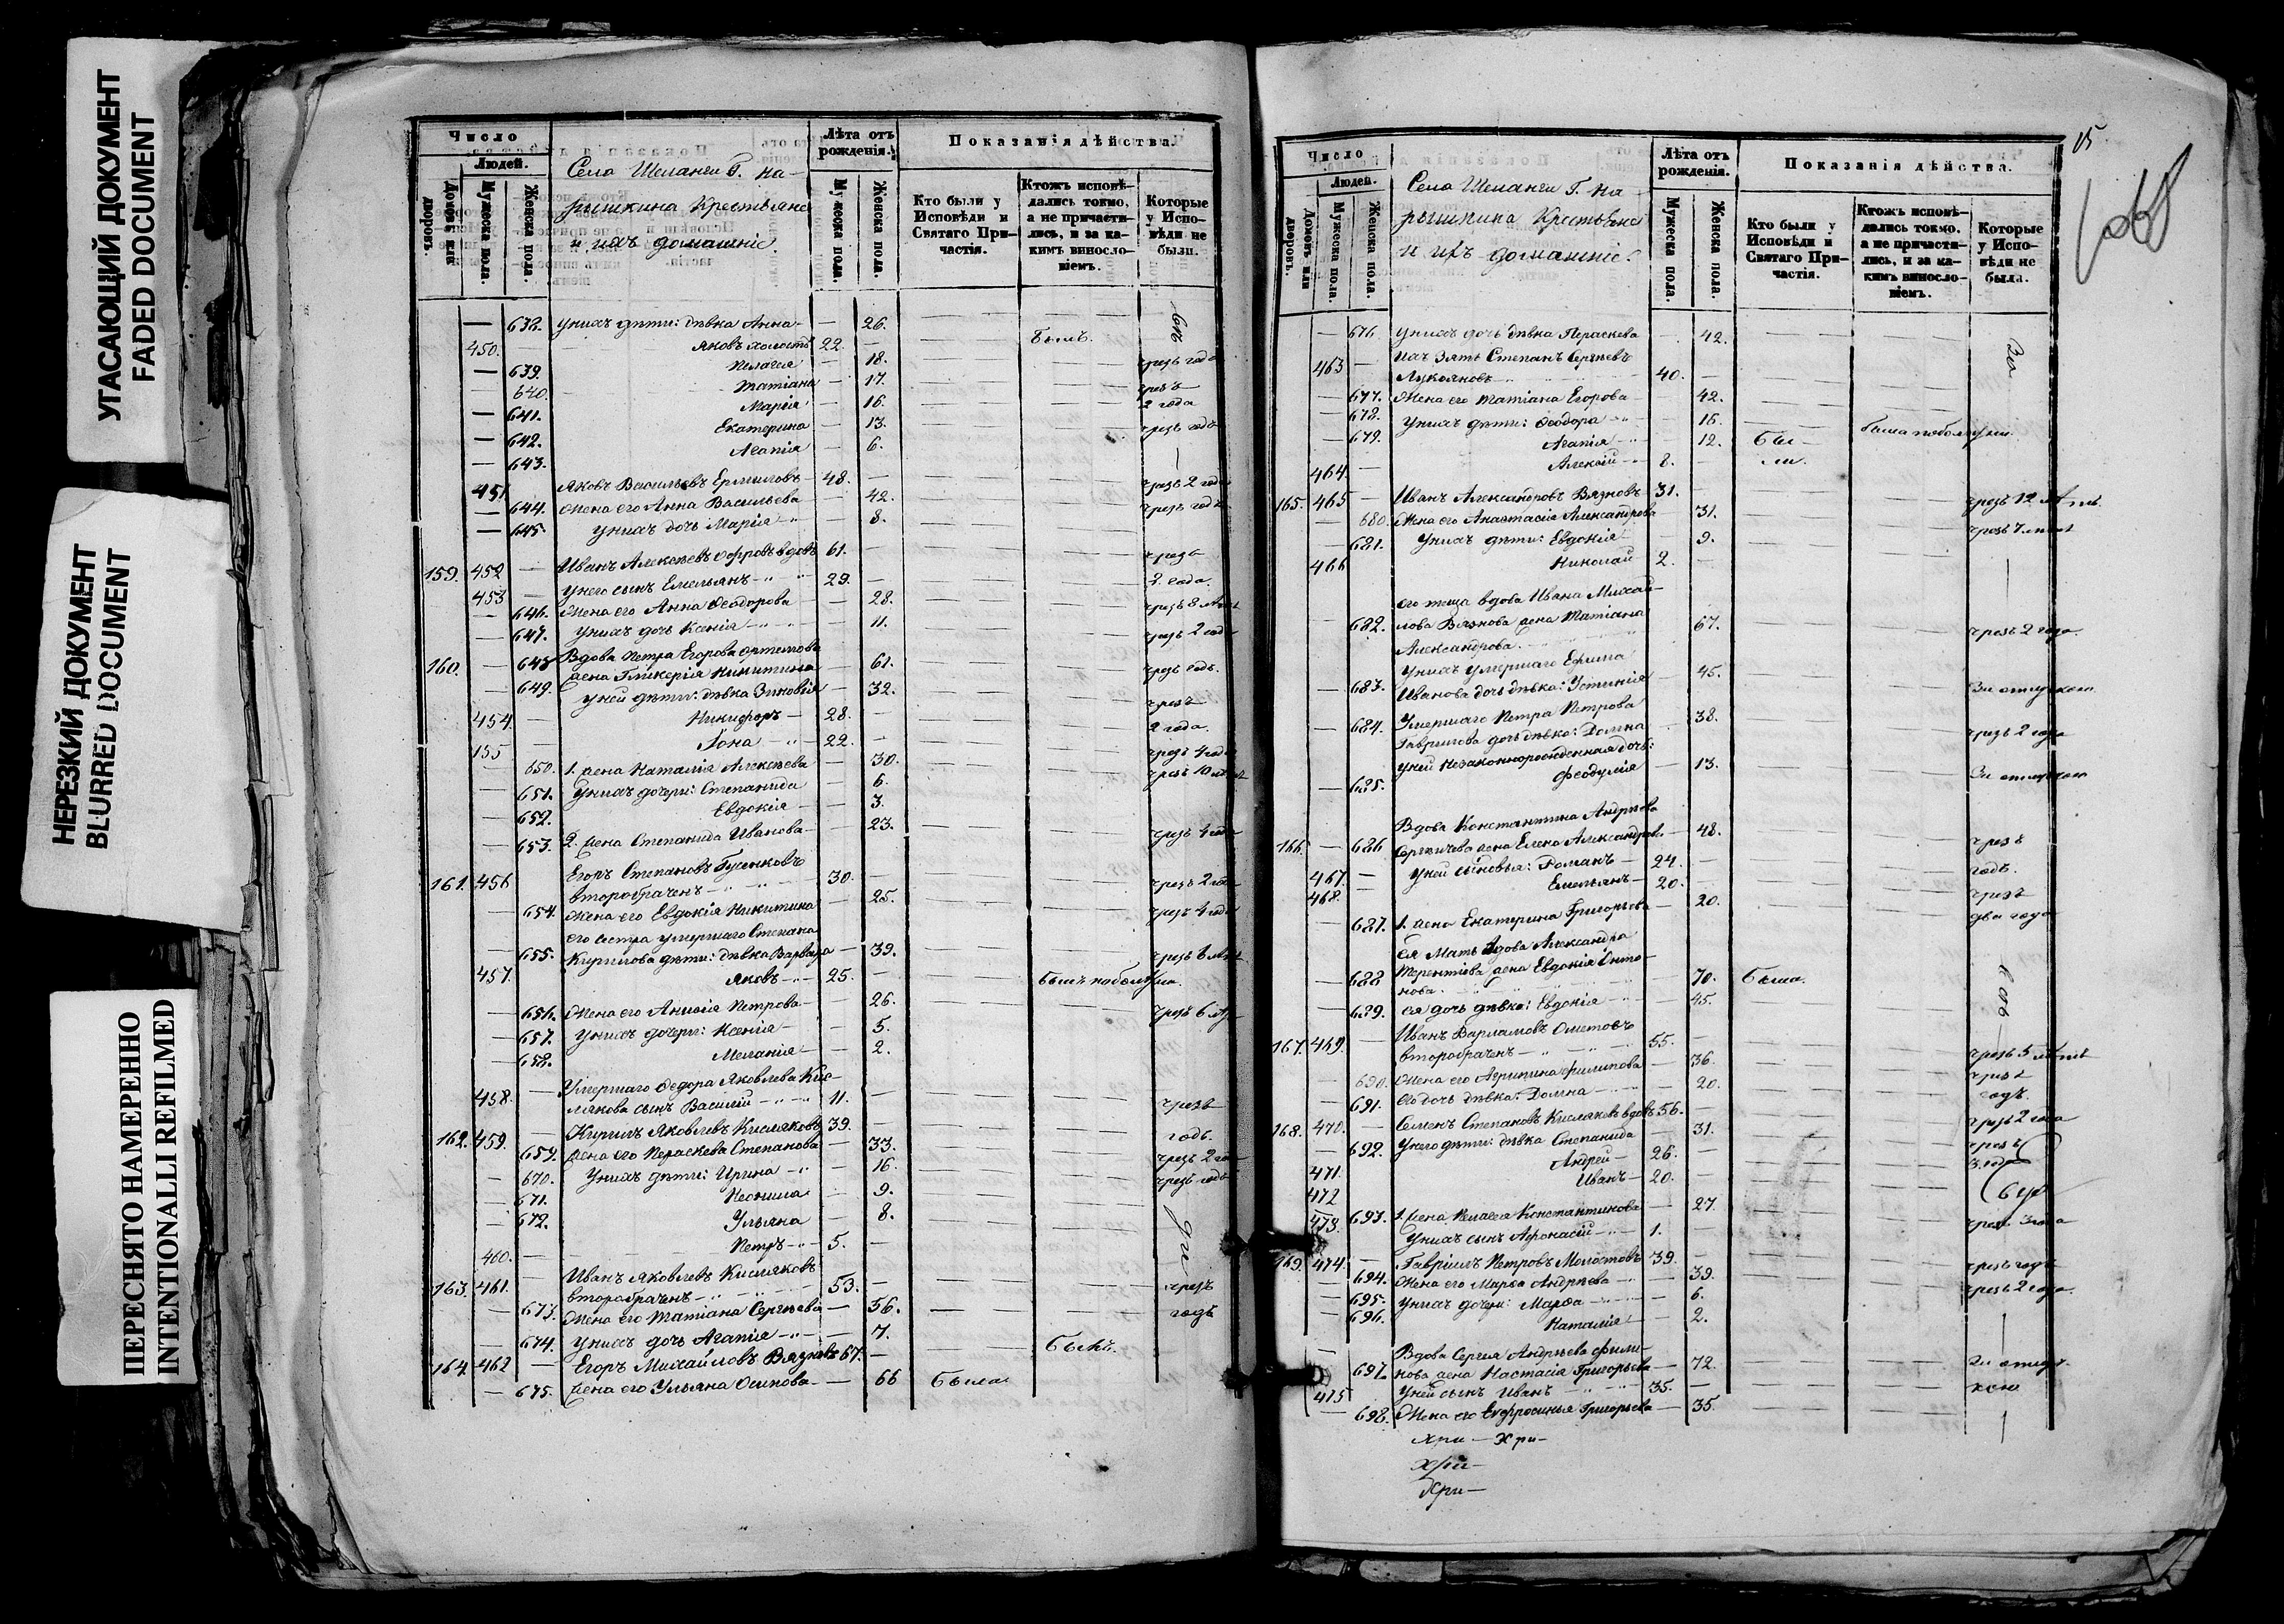 УГАСАЮЩИЙ ДОКУМЕНТ
FADED DOCUMENT
НЕРЕЗКИЙ ДОКУМЕНТ
BLURRED DOCUMENT
ПЕРЕСНЯТО НАМЕРЕННО
INTENTIONALLI REFILMED
Число
Людей.
Домовъ или дворовъ.
Мужеска пола.
Женска пола.
Села Шеланги Г. На-
рышкина Крестьяне
и ихъ домашніе.
Лѣта отъ рожденія.
Мужеска пола.
Женска пола.
Показанія дѣйства.
Кто были у Исповѣди и Святаго Причастія.
Ктожъ исповѣдались токмо, а не причастились, и за какимъ винословіемъ.
Которые у Исповѣди не были.
— 638. Унихъ дѣти: дѣвка Анна — 26.
450. — Яковъ холостъ 22. — Былъ.
— 639. Пелагея — 18. чрезъ годъ
— 640. Татіана — 17. чрезъ
— 641. Марія — 16. 2 года
— 642. Екатерина — 13. чрезъ годъ
— 643. Агапія — 6.
451. Яковъ Васильевъ Ермиловъ — 48. — чрезъ 2 года
— 644. Жена его Анна Васильева — 42. чрезъ годъ
— 645. Унихъ дочь Марія — 8.
159. 452 — Иванъ Алексѣевъ вдовъ 61. — чрезъ
453 — Унего сынъ Емельянъ 29. — 2 года.
— 646. Жена его Анна Ѳеодорова — 28. чрезъ 8 лѣтъ
— 647. Унихъ дочь Ксенія — 11. чрезъ 2 года
160. — 648 Вдова Петра Егорова
жена Гликерія Никитина — 61. чрезъ годъ.
— 649. Уней дѣти: дѣвка Зиновія — 32.
454 — Никифоръ — 28. — чрезъ 2 года.
155 — Іона — 22. — чрезъ 4 года
— 650. 1. жена Наталія Алексѣева — 30. чрезъ 10 лѣтъ
— 651. Унихъ дочери: Степанида — 6.
— 652. Евдокія — 3.
— 653. 2. жена Степанида Иванова — 23. чрезъ 4 года
161. 456 Егоръ Степановъ Гусенковъ
второбраченъ 30. — чрезъ 2 года
— 654. Жена его Евдокія Никитина — 25. чрезъ 4 года
его сестра умершаго Степана
— 655. Кирилова дѣти: дѣвка Варвара — 39. чрезъ 8 лѣтъ
457. Яковъ 25. —
— 656. Жена его Анисія Петрова — 26. чрезъ 6 лѣтъ
— 657. Унихъ дочери: Ксенія — 5.
— 658. Меланія — 2.
Умершаго Ѳедора Яковлева Кис-
458. лякова сынъ Василій 11. — чрезъ
162. 459. Кирилъ Яковлевъ Кисляковъ 39. — годъ.
659. жена его Параскева Степанова — 33. чрезъ 2 года
— 670. Унихъ дѣти: Ирина — 16. чрезъ годъ
— 671. Неонила — 9.
— 672. Ульяна — 8.
460. — Петръ 5. —
163. 461. Иванъ Яковлевъ Кисляковъ
второбраченъ 53. — чрезъ
— 673. Жена его Татіана Сергѣева — 56. годъ
— 674. Унихъ дочь Агапія — 7.
164. 462 — Егоръ Михайловъ Вязновъ 67. —
— 675. жена его Ульяна Осипова — 66 была
15
Число
Людей.
Домовъ или дворовъ.
Мужеска пола.
Женска пола.
Села Шеланги Г. На-
рышкина Крестьяне
и ихъ домашніе.
Лѣта отъ рожденія.
Мужеска пола.
Женска пола.
Показанія дѣйства.
Кто были у Исповѣди и Святаго Причастія.
Ктожъ исповѣдались токмо, а не причастились, и за какимъ винословіемъ.
Которые у Исповѣди не были.
— 676 Унихъ дочь дѣвка Параскева — 42.
463 — Ихъ зять Степанъ Сергѣевъ
Лукояновъ 40. —
— 677. Жена его Татіана Егорова — 42.
— 678. Унихъ дѣти: Ѳеодора — 16.
— 679. Агапія — 12. бы-
464. — Алексій 8. — ли.
165. 465 — Иванъ Александровъ Вязновъ 31. — чрезъ 12 лѣтъ.
— 680. Жена его Анастасія Александрова 31. чрезъ 7 лѣтъ
— 681. Унихъ дѣти: Евдокія — 9.
466 Николай 2. —
его теща вдова Ивана Михай-
— 682. лова Вязнова жена Татіана 67. чрезъ 2 года.
Александрова.
Унихъ умершаго Ефима
— 683. Иванова дочь дѣвка: Устинія — 45. За отлучкою
— 684. Умершаго Петра Петрова — 38.
Гаврилова дочь дѣвка: Домна чрезъ 2 года
уней незаконнорожденная дочь:
— 685. Ѳеодулія — 13. За отлучкою
Вдова Константина Андрѣева
166. — 686 Сергѣичева жена Елена Александрова — 48. чрезъ
467. — Уней сыновья: Романъ — 24. — годъ.
468. Емельянъ — 20. — чрезъ
— 687. 1. жена Екатерина Григорьева — 20. два года
Ея мать вдова Александра
— 688 Терентіева жена Евдокія Анто-
нова. — 70. Была.
— 689. ея дочь дѣвка: Евдокія — 45.
167. 469. — Иванъ Варламовъ Ометовъ
второбраченъ 55. — чрезъ 5 лѣтъ
— 690. Жена его Агрипина Филипова — 36. чрезъ
— 691. Ея дочь дѣвка: Домна — 20. годъ.
168. 470. — Семенъ Степановъ Кисляковъ вдовъ 56. — чрезъ 2 года
— 692. Унего дѣти: дѣвка Степанида — 31. чрезъ
471. Андрей — 26. — 3 года
472 Иванъ — 20. —
693. 1. жена Пелагея Константинова — 27.
473. Унихъ сынъ Афонасій 1. чрезъ 3 года
169. 474. — Гавріилъ Петровъ Молостовъ 39. — чрезъ годъ
— 694. Жена его Марѳа Андрѣева — 39. чрезъ 2 года.
— 695. Унихъ дочери: Марѳа — 6.
— 696. Наталія — 2.
— Вдова Сергѣя Андрѣева Фили-
697. нова жена Настасія Григорьева — 72. За отлуч-
475 Уней сынъ Иванъ 35. — кою
— 698. Жена его Евфросинья Григорьева — 35.
Хри — Хри —
Хри —
Хри —